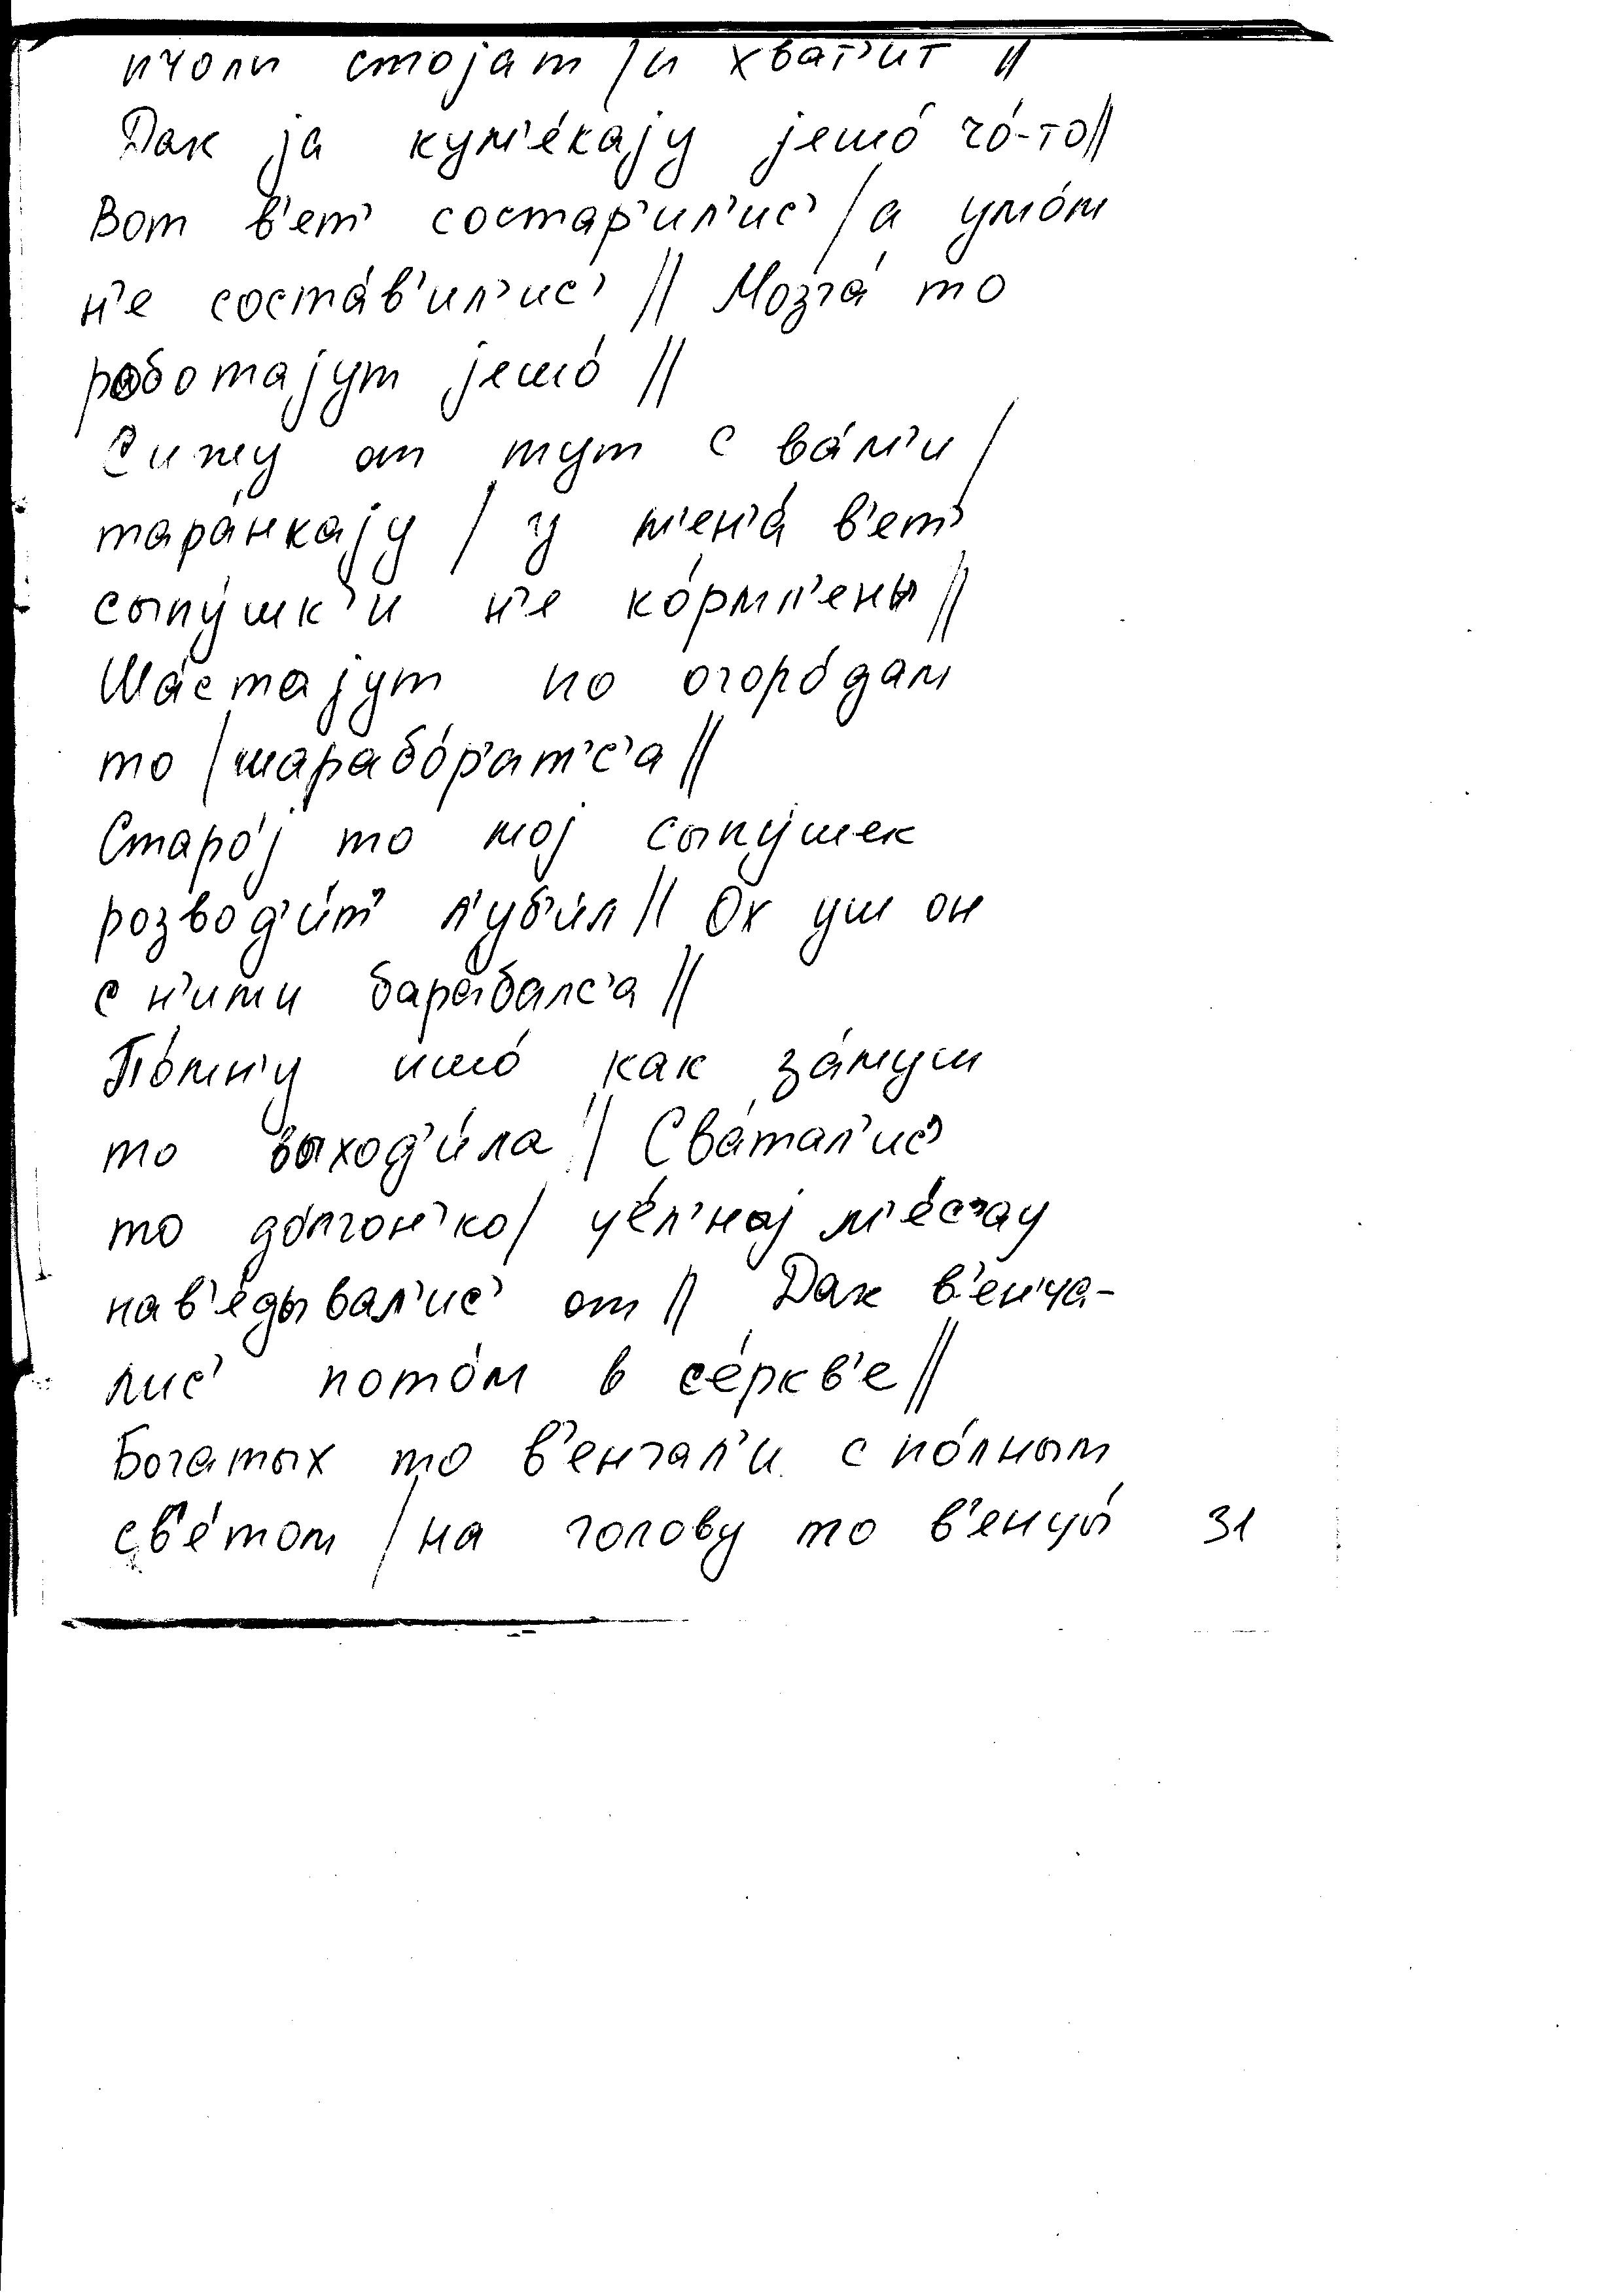 пчоли стоjат / и хват'ит //
Дак jа кум'éкаjу jешó чó-то //
Вот в'ет' состар'ил'ис' / а умóм
н'е состáв'ил'ис' // Мозгá то
роботаjут jешó //
Сижу от тут с вáм'и /
тарáнкаjу / у м'ен'á в'ет'
сыпýшк'и н'е кóрмл'ены //
Шáстаjут по огорóдам
то / шарабóр'ат'с'а //
Старój то моj сыпýшек
розвод'и́т' л'уб'и́л // Ох уш он
с н'ими барáбалс'а //
Пóмн'у ишó как зáмуш
то выход'и́ла // Свáтал'ис'
то дóлгон'ко / цéл'ноj м'éс'ац
нав'éдывал'ис' от // Дак в'енча-
лис' потóм в сéркв'е //
Богатых то в'енчал'и с пóлным
св'éтом / на голову то в'енцы́ 31